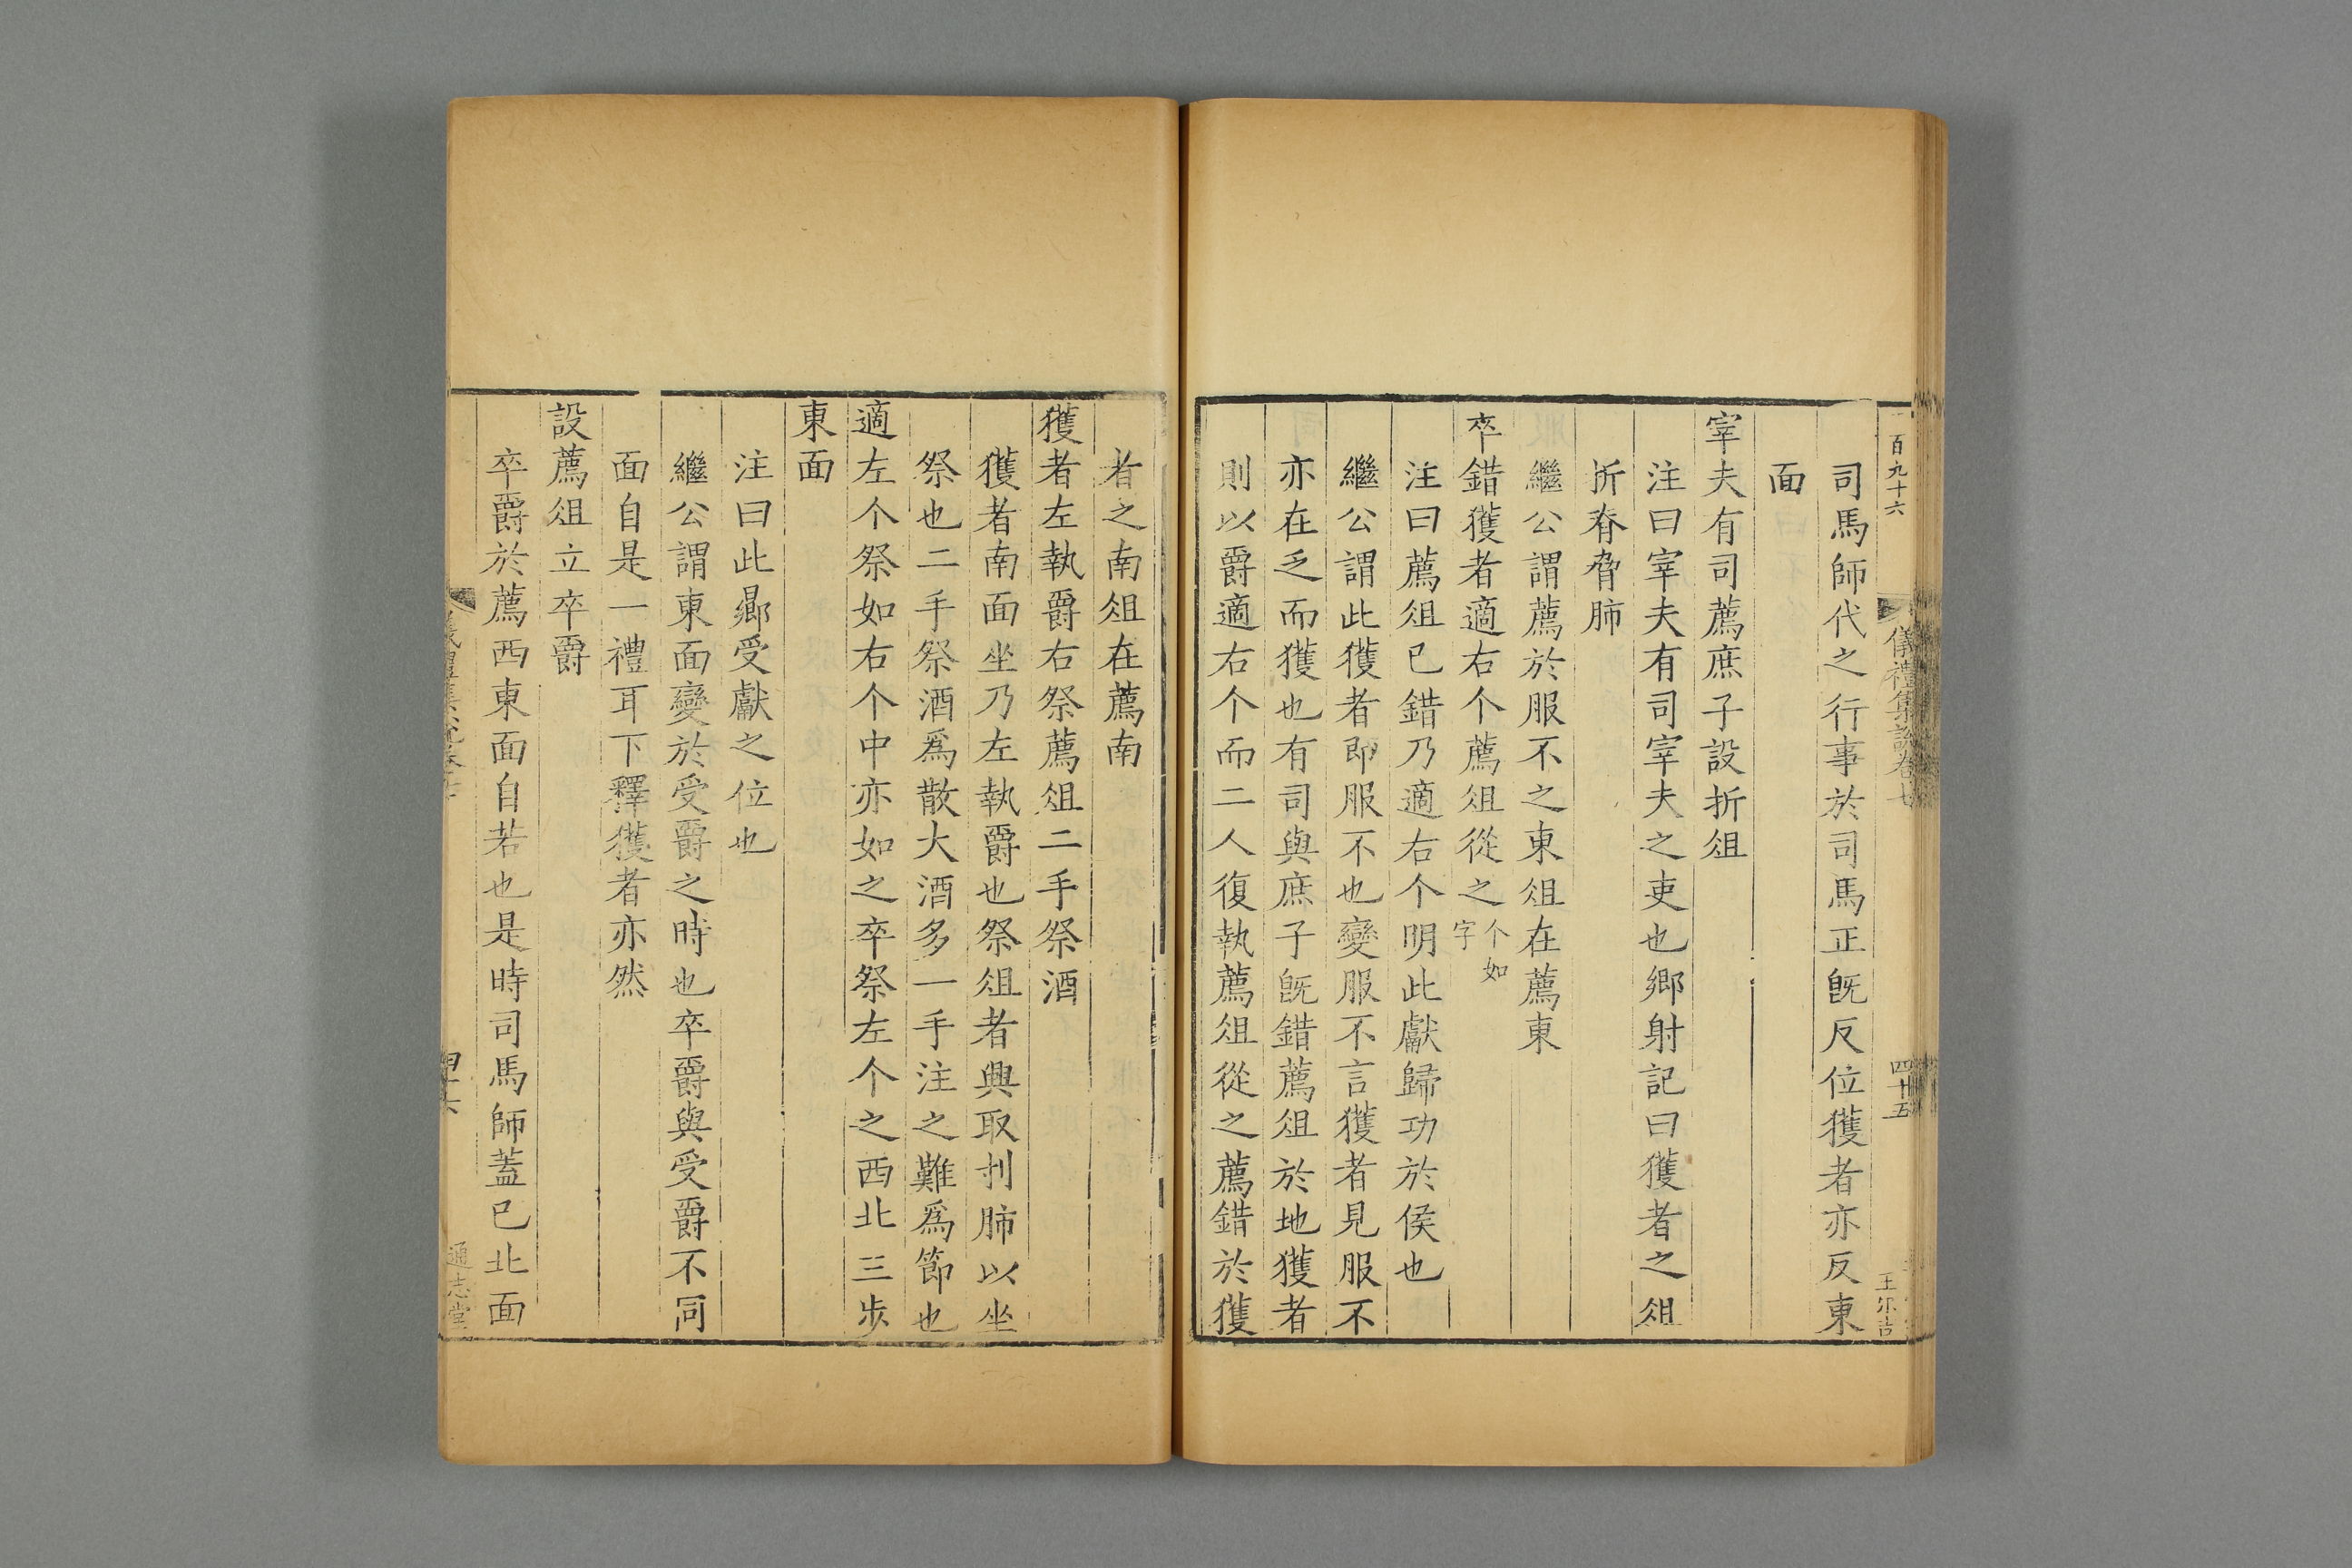 百九十六
儀禮集說卷七
四十五
王尔吉
司馬師代之行事於司馬正旣反位獲者亦反東
面
宰夫有司薦庶子設折俎
注曰宰夫有司宰夫之吏也鄉射記曰獲者之俎
折脊脅肺
繼公謂薦於服不之東俎在薦東
卒錯獲者適右个薦俎從之个如字
注曰薦俎已錯乃適右个明此獻歸功於侯也
繼公謂此獲者即服不也變服不言獲者見服不
亦在乏而獲也有司與庶子旣錯薦俎於地獲者
則以爵適右个而二人復執薦俎從之薦錯於獲
者之南俎在薦南
獲者左執爵右祭薦俎二手祭酒
獲者南面坐乃左執爵也祭俎者興取刌肺以坐
祭也二手祭酒爲散大酒多一手注之難爲節也
適左个祭如右个中亦如之卒祭左个之西北三步
東面
注曰此鄉受獻之位也
繼公謂東面變於受爵之時也卒爵與受爵不同
面自是一禮耳下釋獲者亦然
設薦俎立卒爵
卒爵於薦西東面自若也是時司馬師蓋已北面
四十六
通志堂